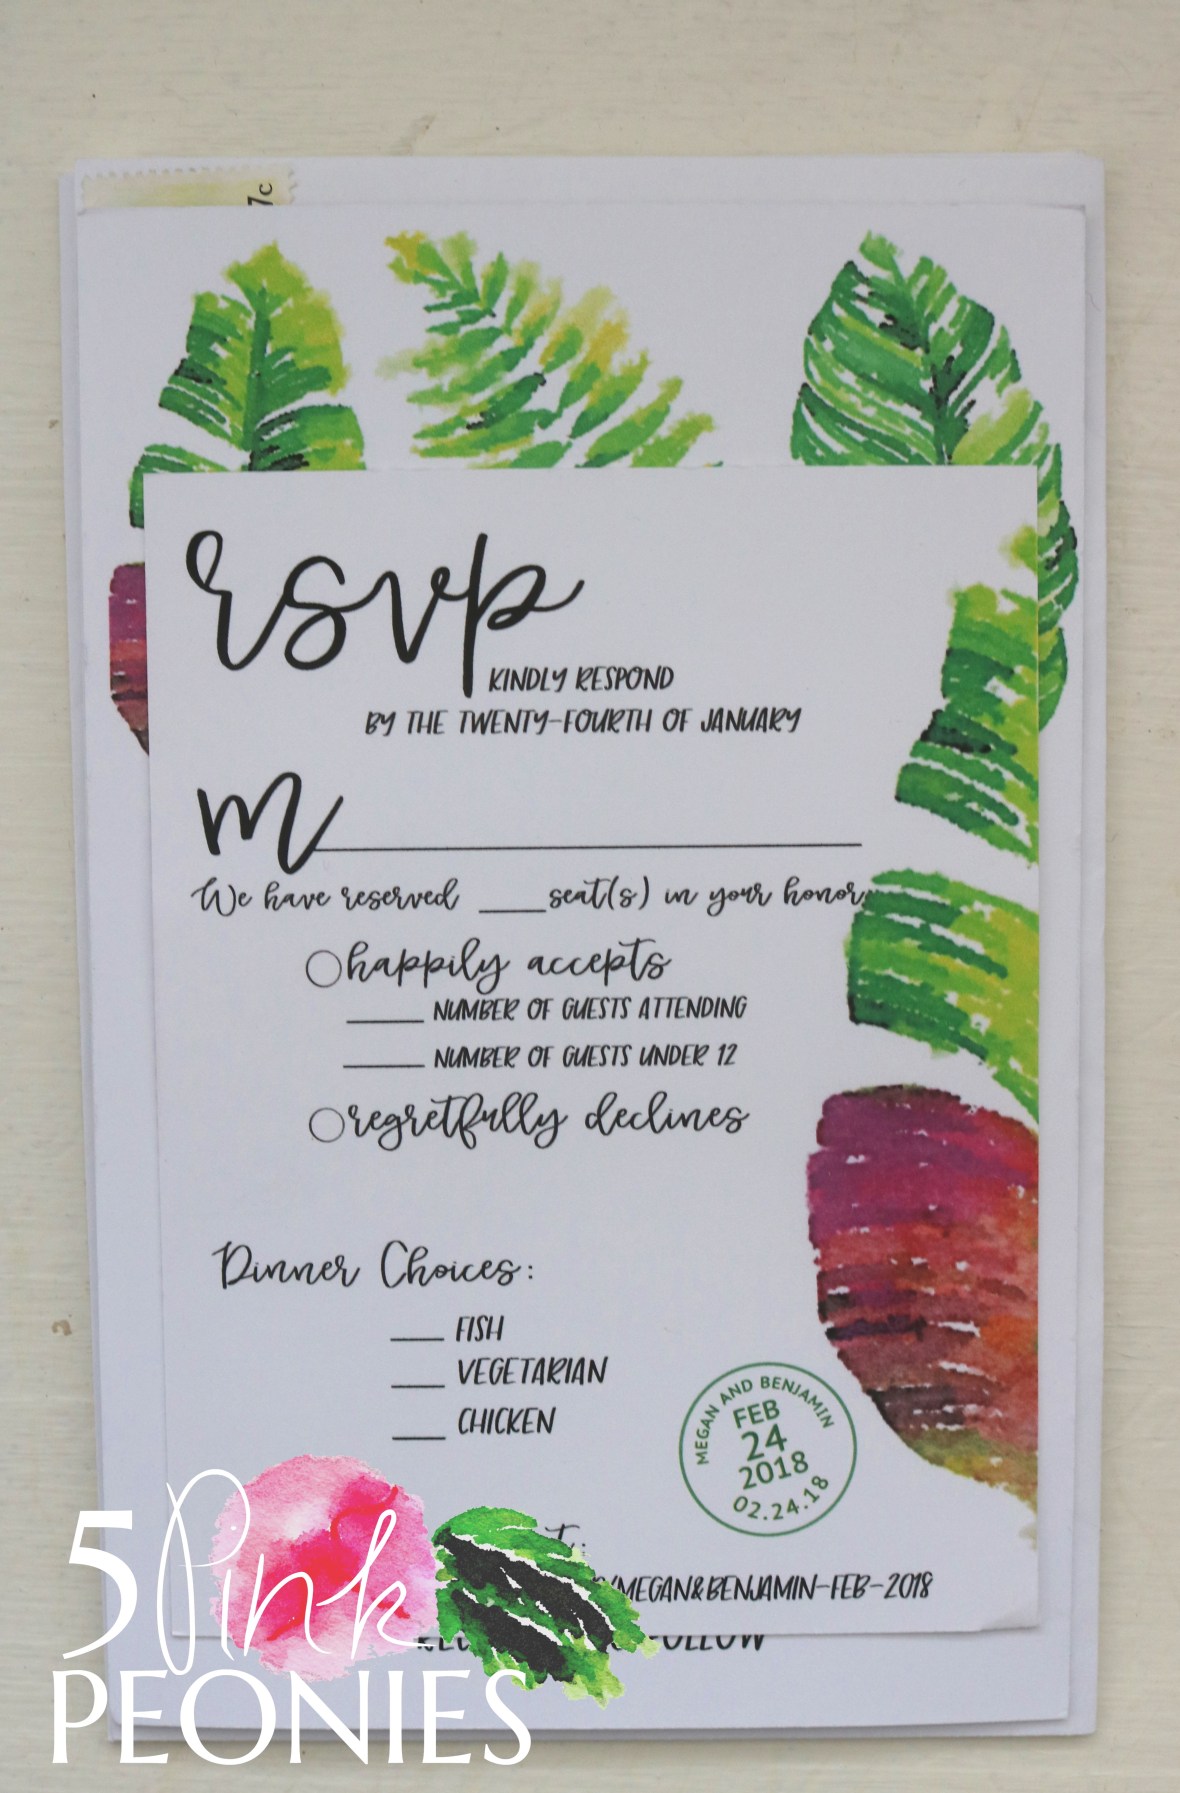 7c
rsvp
KINDLY RESPOND
BY THE TWENTY-FOURTH OF JANUARY
m
We have reserved ____ seat(s) in your honor.
happily accepts
____ NUMBER OF GUESTS ATTENDING
____ NUMBER OF GUESTS UNDER 12
regretfully declines
Dinner Choices:
___ FISH
___ VEGETARIAN
___ CHICKEN
MEGAN AND BENJAMIN
FEB
24
2018
02.24.18
/MEGAN&BENJAMIN-FEB-2018
FOLLOW
5 Pink
PEONIES